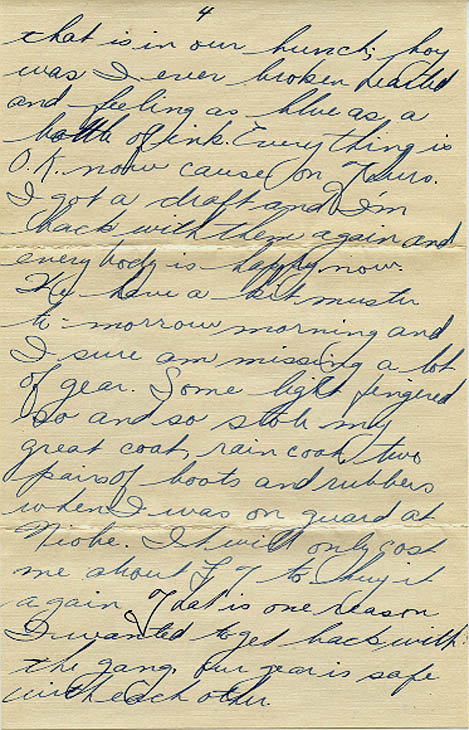 4
that is in our bunch; boy
was I ever broken hearted
and feeling as blue as a
bottle of ink. Everything is
O.K. now cause on Thurs.
I got a draft and I'm
back with them again and
everybody is happy now.
We have a kit muster
to-morrow morning and
I sure am missing a lot
of gear. Some light fingered
so and so stole my
great coat, rain coat, two
pairs of boots and rubbers
when I was on guard at
Niobe. It will only cost
me about £7 to buy it
again. That is one reason
I wanted to get back with
the gang. Our gear is safe
with each other.